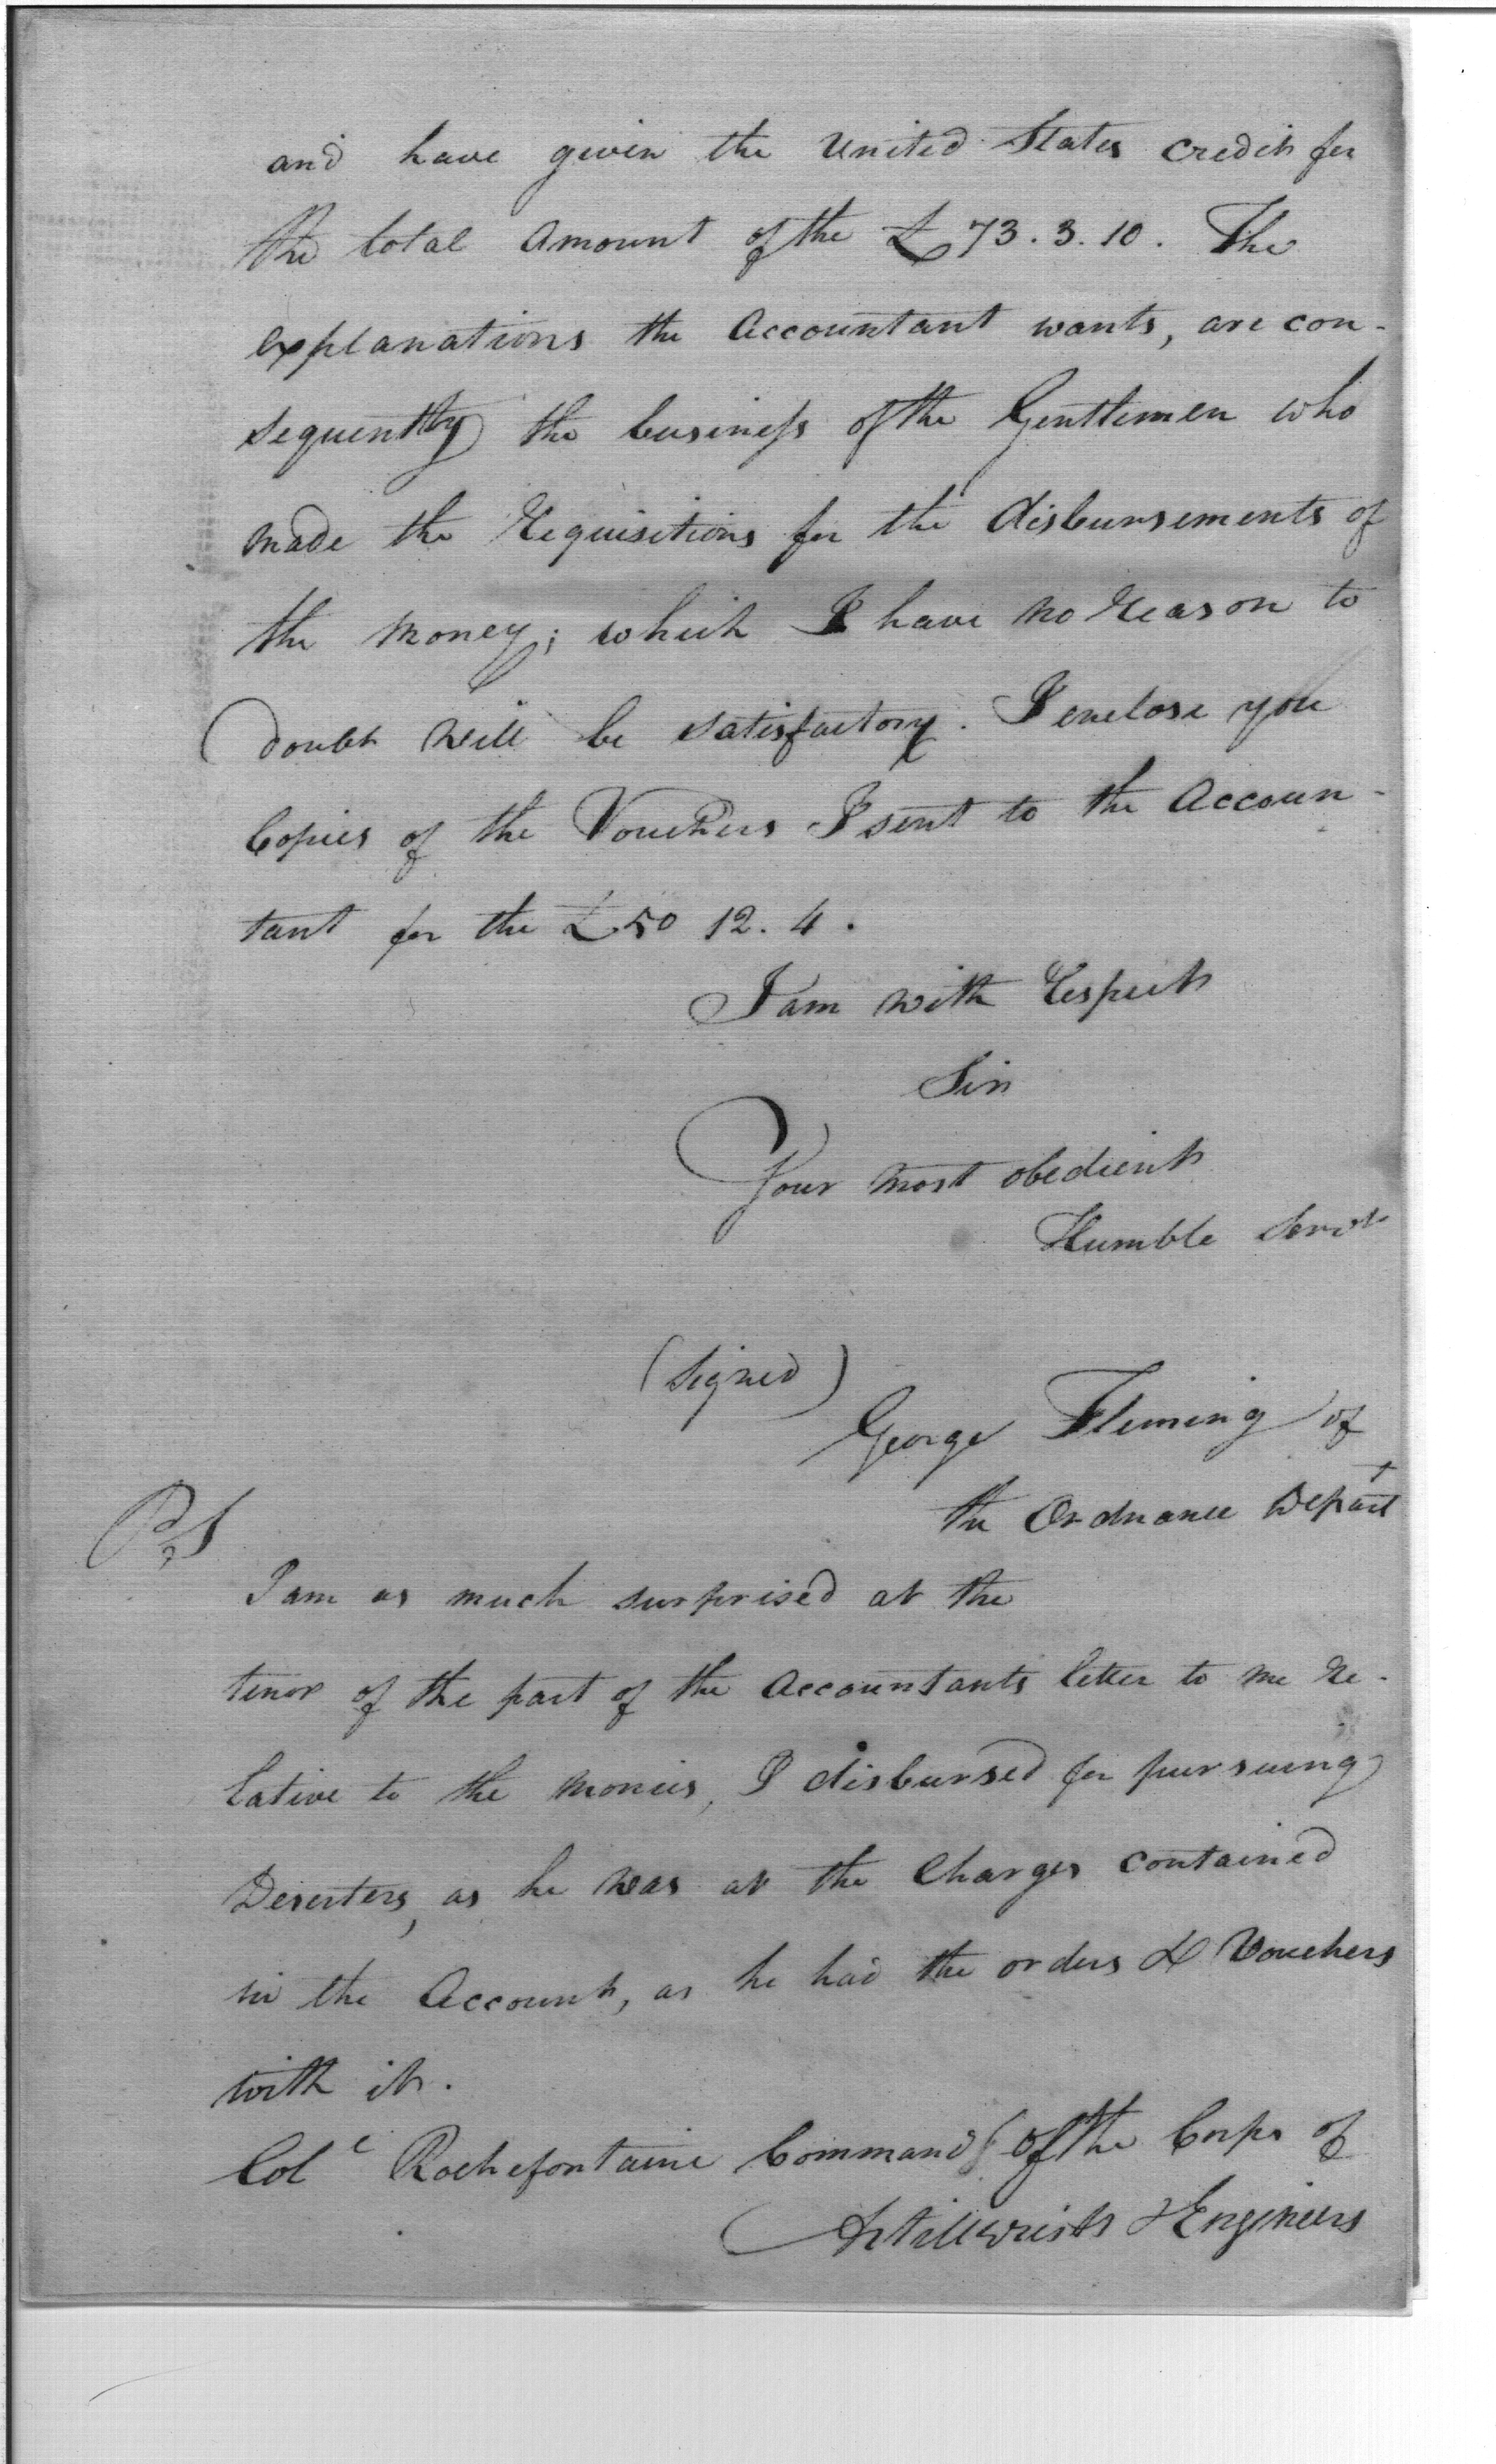 and have given the United States credit for
the total Amount of the £73.3.10. The
explanations the Accountant wants, are con-
sequently the business of the Gentlemen who
made the Requisitions for the disbursements of
the Money; which I have no reason to
doubt will be satisfactory. I enclose you
Copies of the Vouchers I sent to the Accoun-
tant for the £50 12. 4.
I am with Respect
Sir
Your most obedient
Humble Servt
(Signed)
George Fleming of
the Ordnance Depart
PS
I am as much surprised at the
tenor of the part of the Accountants letter to me re-
lative to the monies, I disbursed for pursuing
Deserters, as he was at the Charges contained
in the Account, as he had the orders & Vouchers
with it.
Col Rochefontaine Command of the Corps of
Artillerists & Engineers